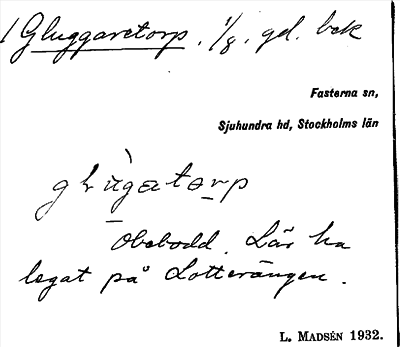 1 Gluggaretorp. 1/8. gd. bek
Fasterna sn,
Sjuhundra hd, Stockholms län
glùgatorp
Obebodd. Lär ha
legat på Lotterängen.
L. MADSÉN 1932.